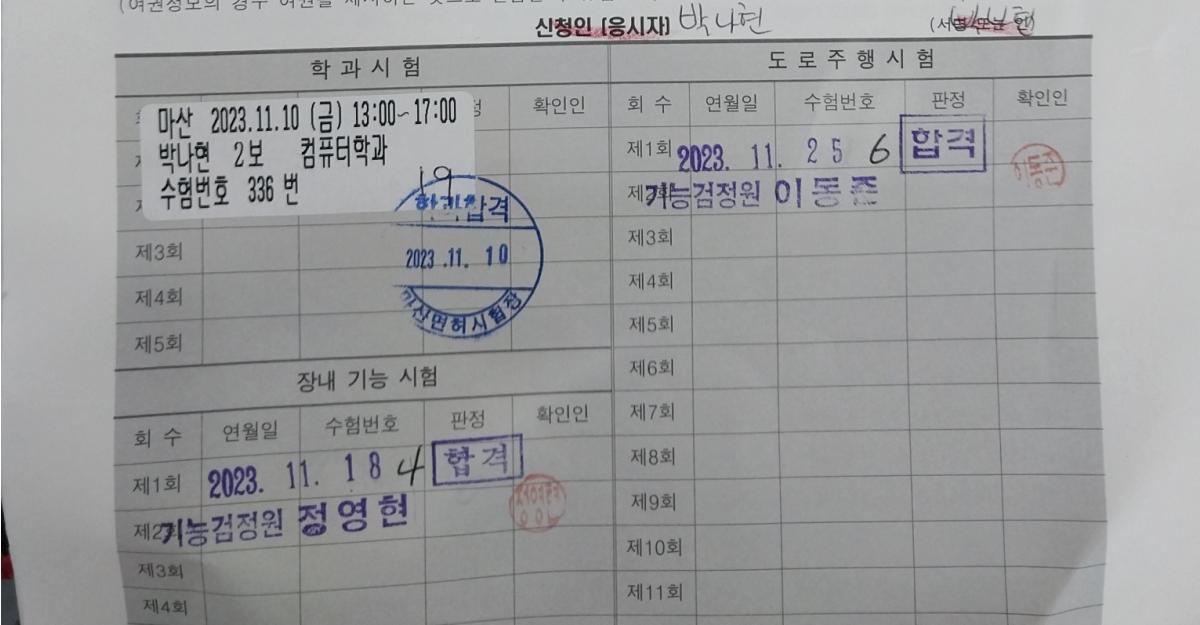 신청인 (응시자) 박나현
학과시험
확인인
마산 2023.11.10 (금) 13:00~17:00
박나현 2보 컴퓨터학과
수험번호 336 번
19
합격
2023.11.10
마산면허시험장
제3회
제4회
제5회
장내 기능 시험
회 수 연월일 수험번호 판정 확인인
제1회 2023. 11. 18 4 합격
기능검정원 정영현
제3회
제4회
도로주행시험
회 수 연월일 수험번호 판정 확인인
제1회 2023. 11. 25 6 합격
기능검정원 이동준
이동준
제3회
제4회
제5회
제6회
제7회
제8회
제9회
제10회
제11회